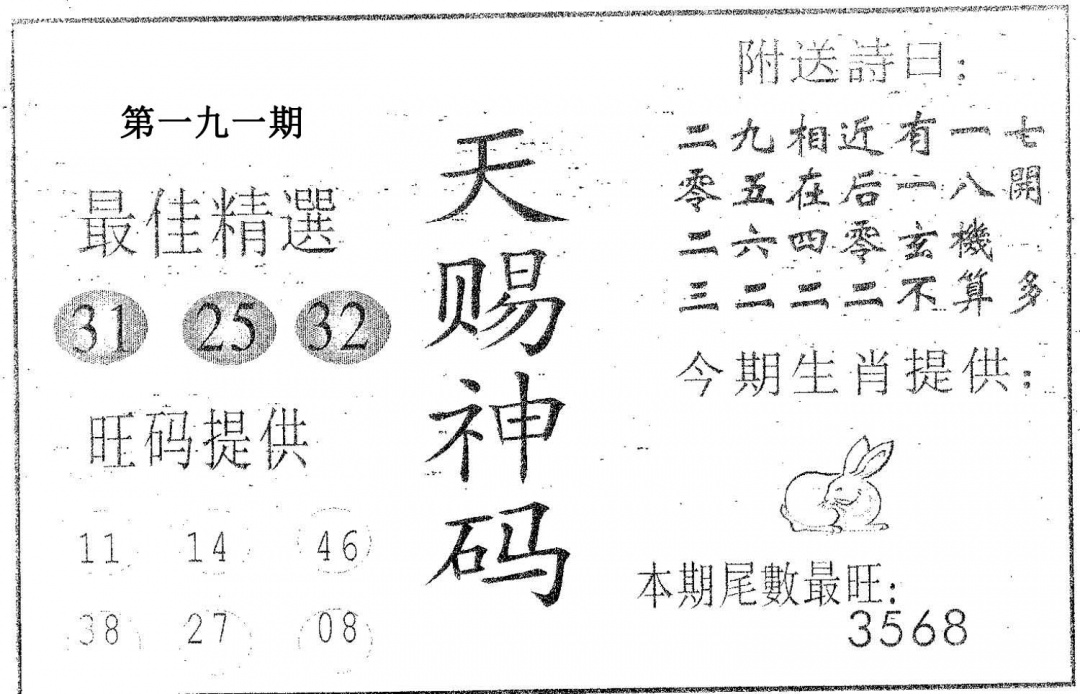 第一九一期
最佳精選
31 25 32
旺码提供
11 14 46
38 27 08
天赐神码
附送詩曰：
二九相近有一七
零五在后一八開
二六四零玄機
三二二二不算多
今期生肖提供：
本期尾數最旺：
3568